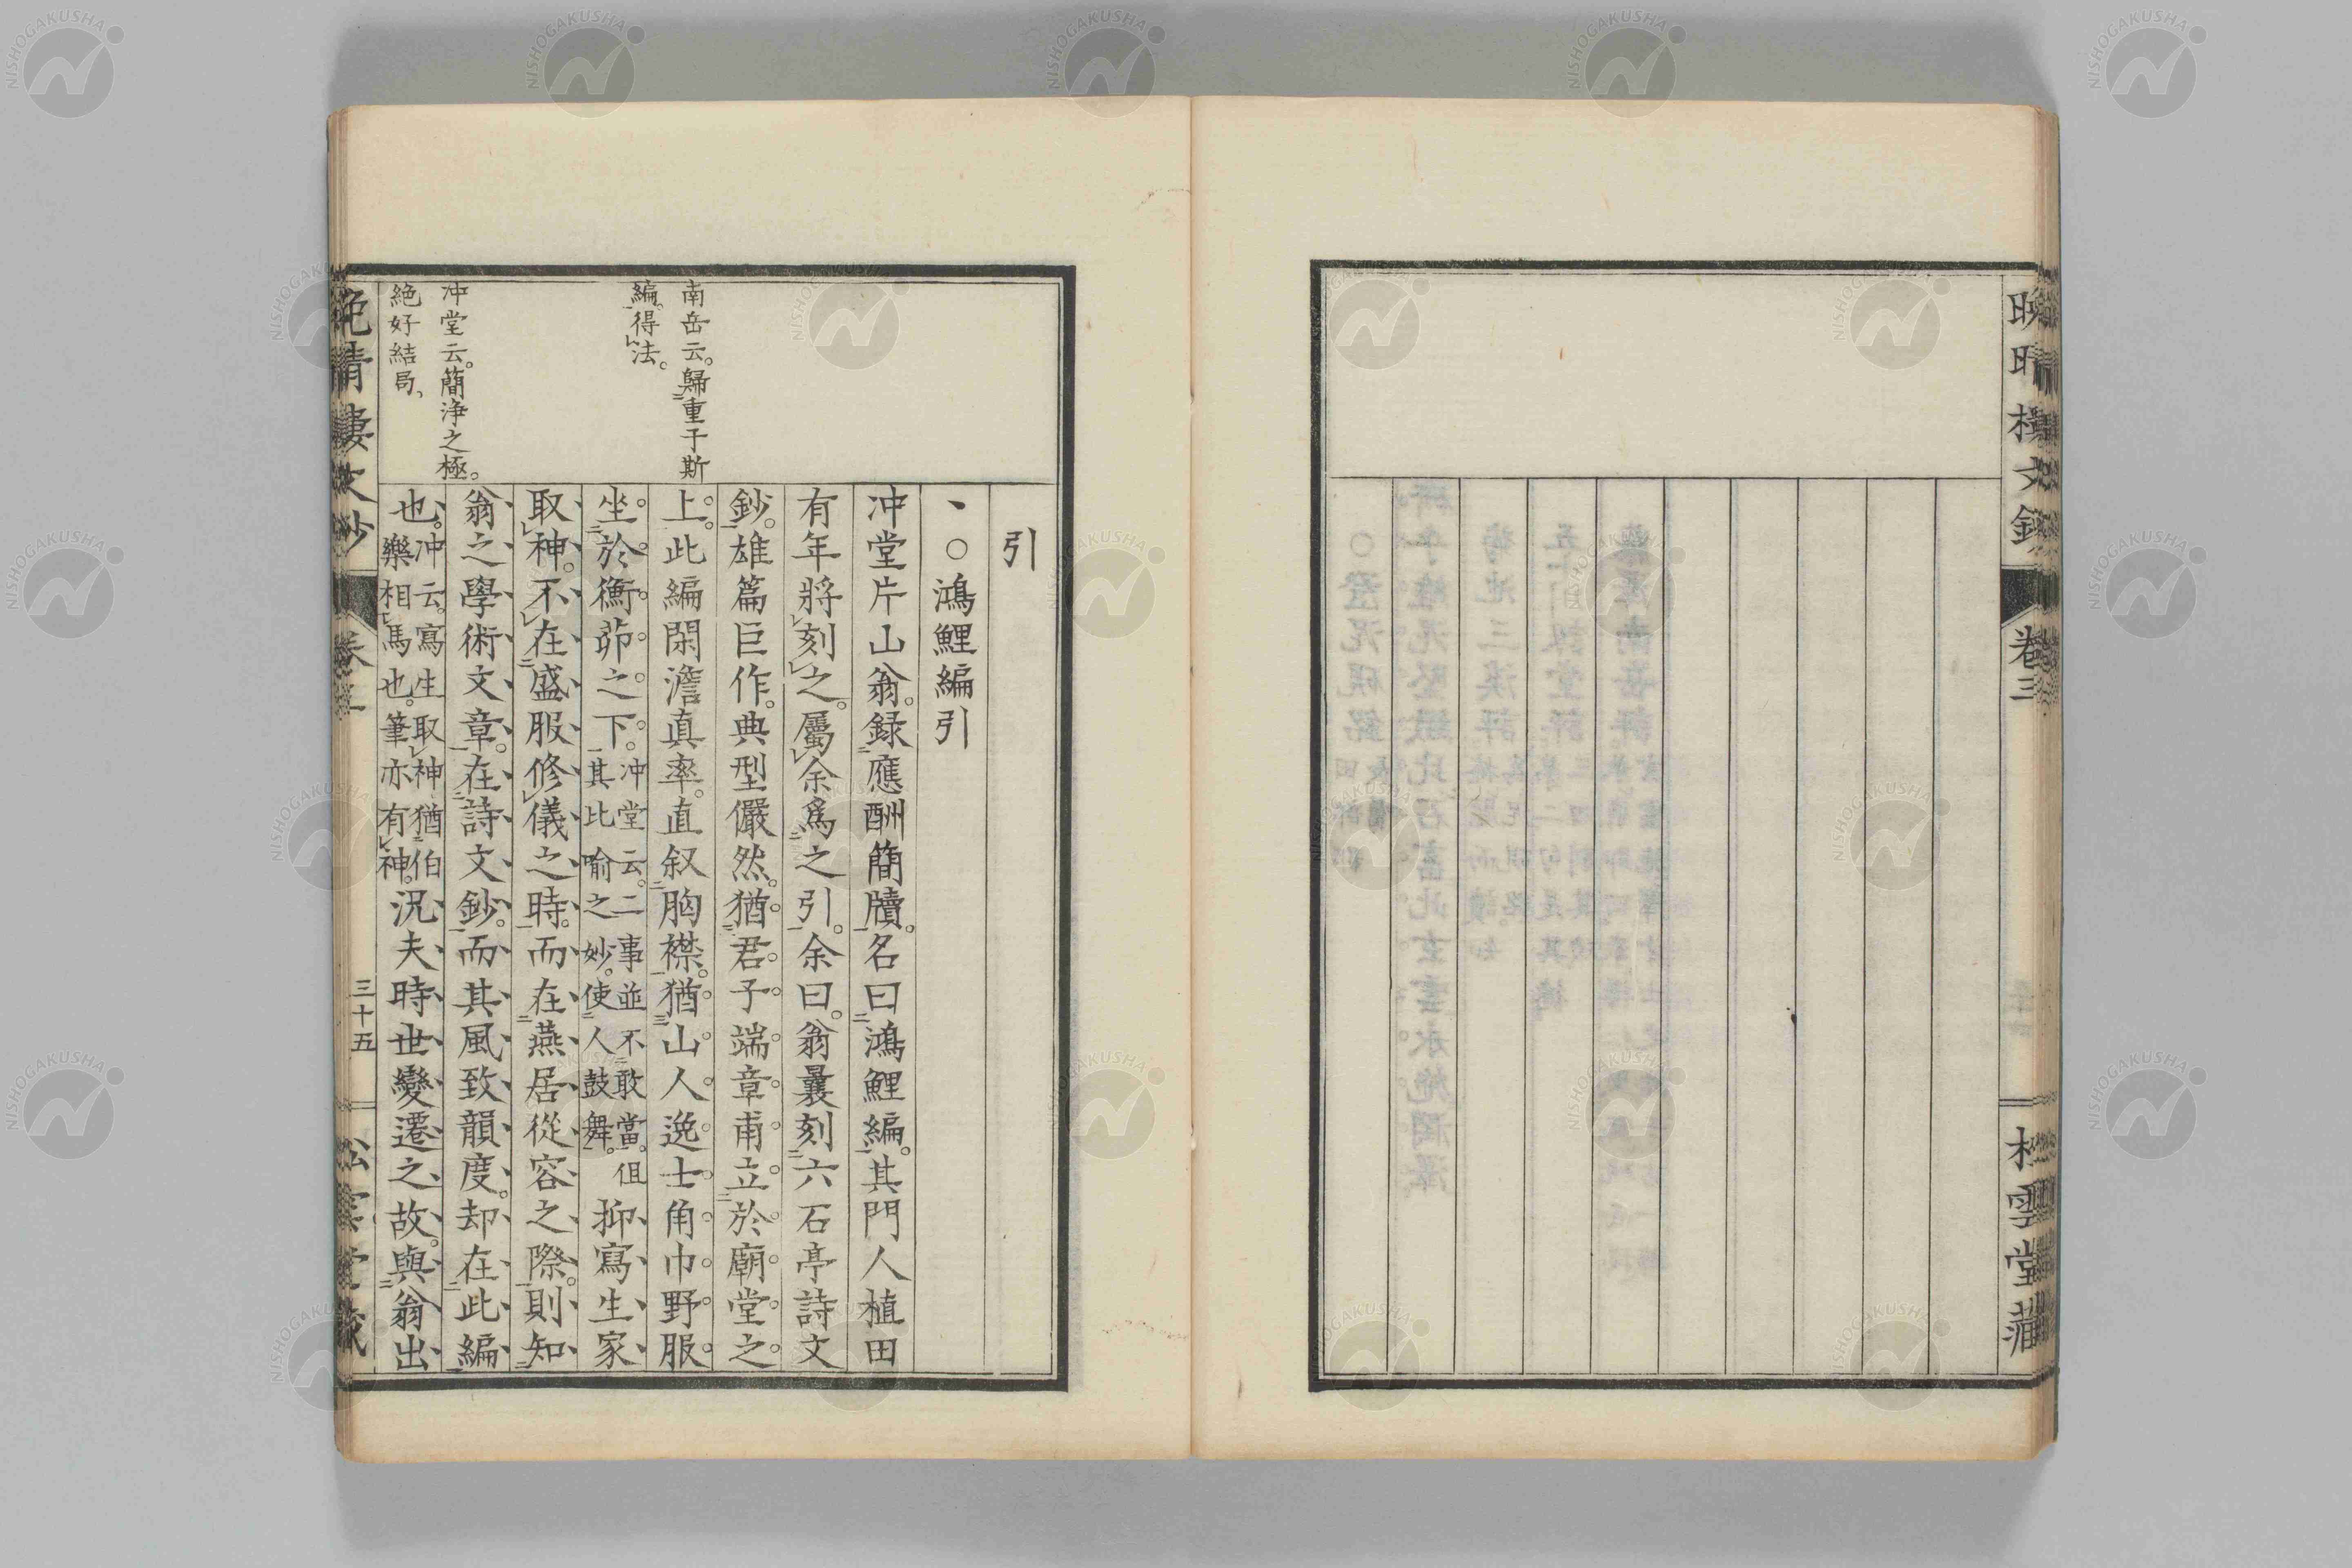 卷三
雲堂
引
、○鴻鯉編引
冲堂片山翁。録應酬簡牘。名曰鴻鯉編。其門人植田
有年將刻之。屬余爲之引。余曰。翁曩刻六石亭詩文
鈔。雄篇巨作。典型儼然。猶君子端章甫立於廟堂之
上。此編閑澹真率。直叙胸襟。猶山人逸士角巾野服
坐於衡茆之下。冲堂云。二事並不敢當。但其比喻之妙。使人鼓舞。抑寫生家
取神。不在盛服修儀之時。而在燕居從容之際。則知
翁之學術文章。在詩文鈔。而其風致韻度。却在此編
也。冲云。寫生取神猶伯樂相馬也。筆亦有神。況夫時世變遷之故。與翁出
南岳云。歸重于斯
編。得法。
冲堂云。簡淨之極。
絶好結局、
三十五
NISHOGAKUSHA